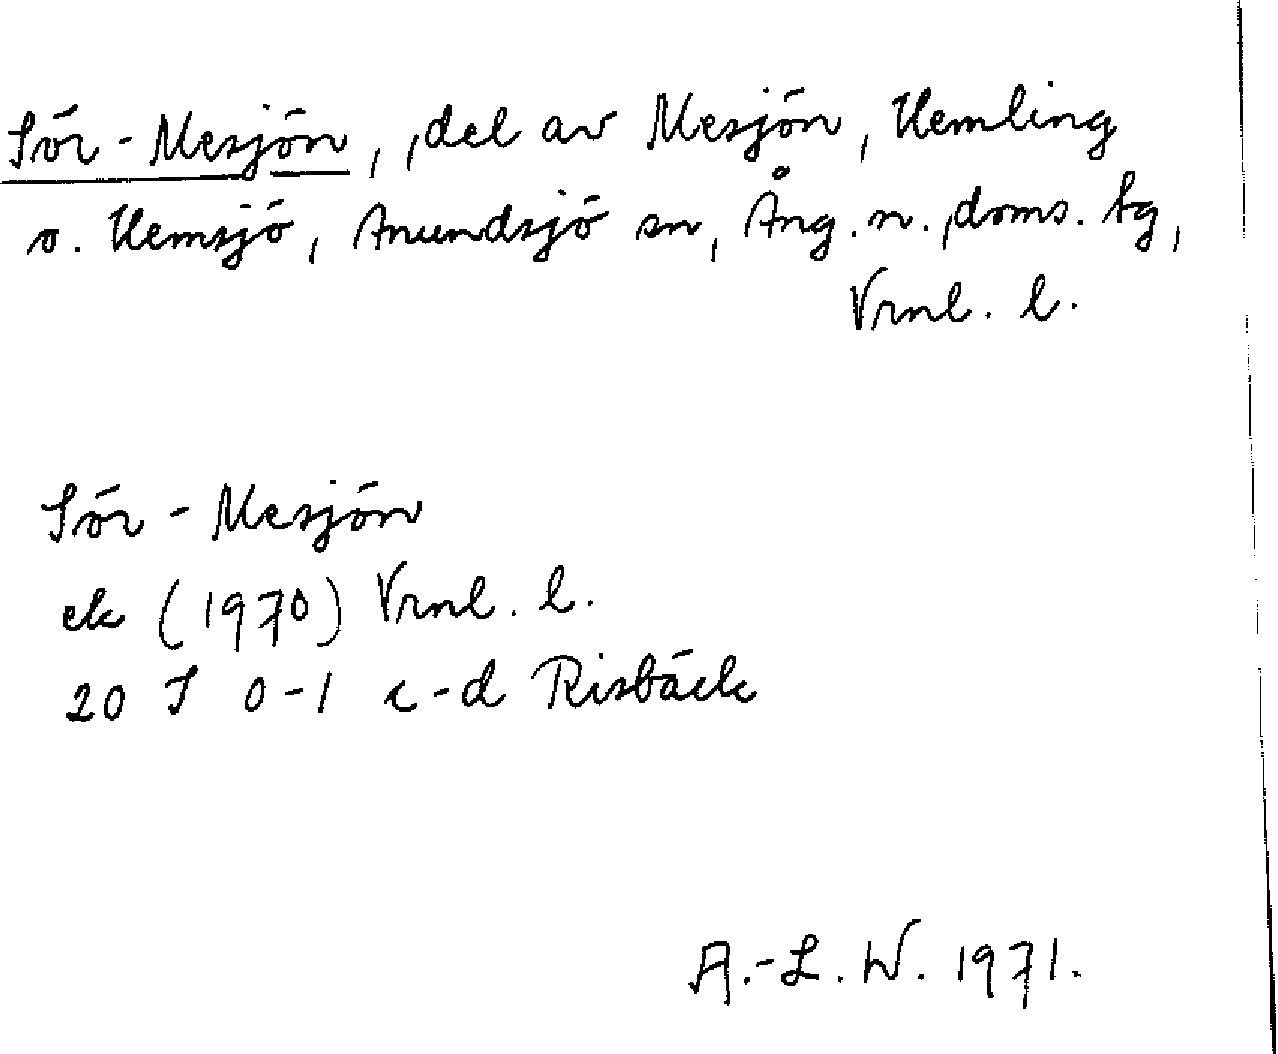 Sör-Mesjön, del av Mesjön, Hemling
o. Hemsjö, Anundsjö sn, Ång. n. doms. tg,
Vrnl. l.
Sör-Mesjön
ek (1970) Vrnl. l.
20 I 0-1 c-d Risbäck
A.-L. W. 1971.